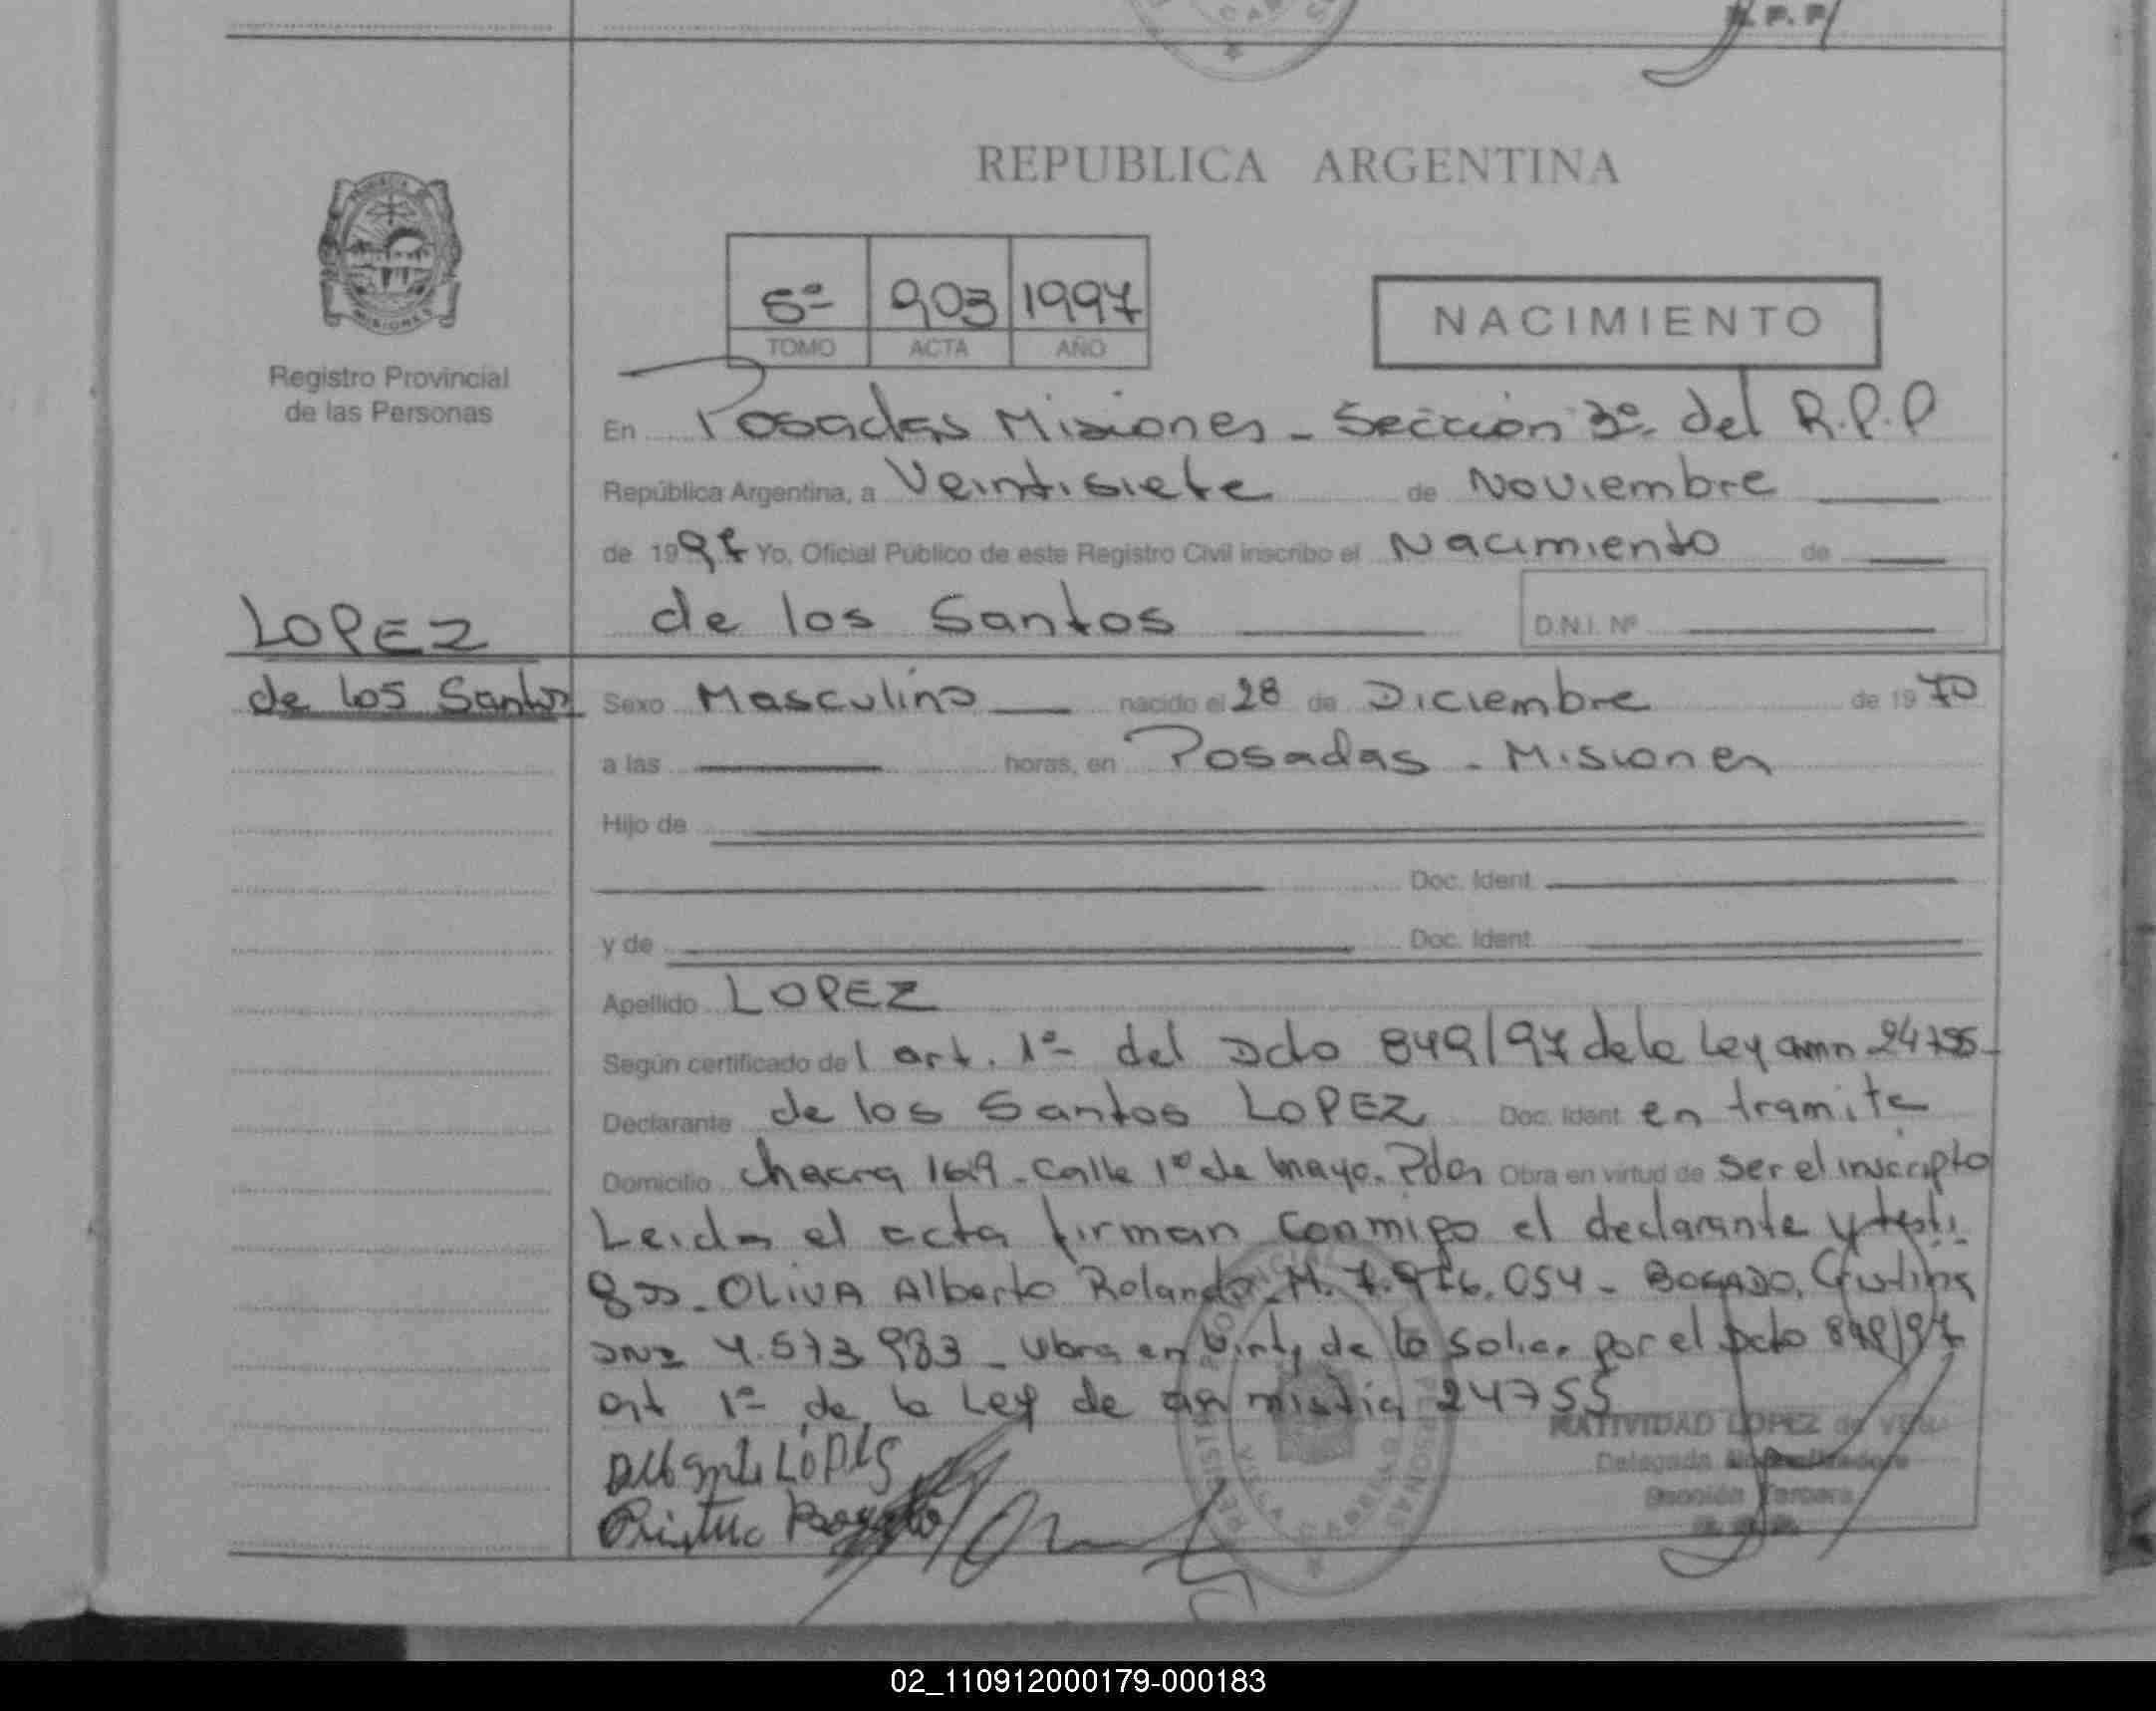 R.P.P
REPUBLICA ARGENTINA
MISIONES
Registro Provincial
de las Personas
5º 903 1997
TOMO ACTA AÑO
NACIMIENTO
En Posadas Misiones - Sección 3º del R.P.P
República Argentina, a Veintisiete de Noviembre
de 1997 Yo, Oficial Público de este Registro Civil inscribo el Nacimiento de
LOPEZ
de los Santos
D.N.I. Nº
de los Santos
Sexo Masculino nacido el 28 de Diciembre de 1970
a las horas, en Posadas - Misiones
Hijo de
Doc. Ident.
y de Doc. Ident.
Apellido LOPEZ
Según certificado del art. 1º del Dcto 849/97 de la Ley amn 24755
Declarante de los Santos LOPEZ Doc. Ident en tramite
Domicilio chacra 169 - Calle 1º de mayo. Pdas Obra en virtud de ser el inscripto
Leida el acta firman conmigo el declarante y testi
gos - OLIVA Alberto Rolando M. BOGADO,
DNI 4.573.983 - obra en de lo solic. por el Dcto 849/97
art 1º de la Ley de amnistia 24755
NATIVIDAD LOPEZ de
Delegada
Sección Tercera
LOPES
REGISTRO PROVINCIAL DE LAS PERSONAS
VILLA CABELLO
02_110912000179-000183